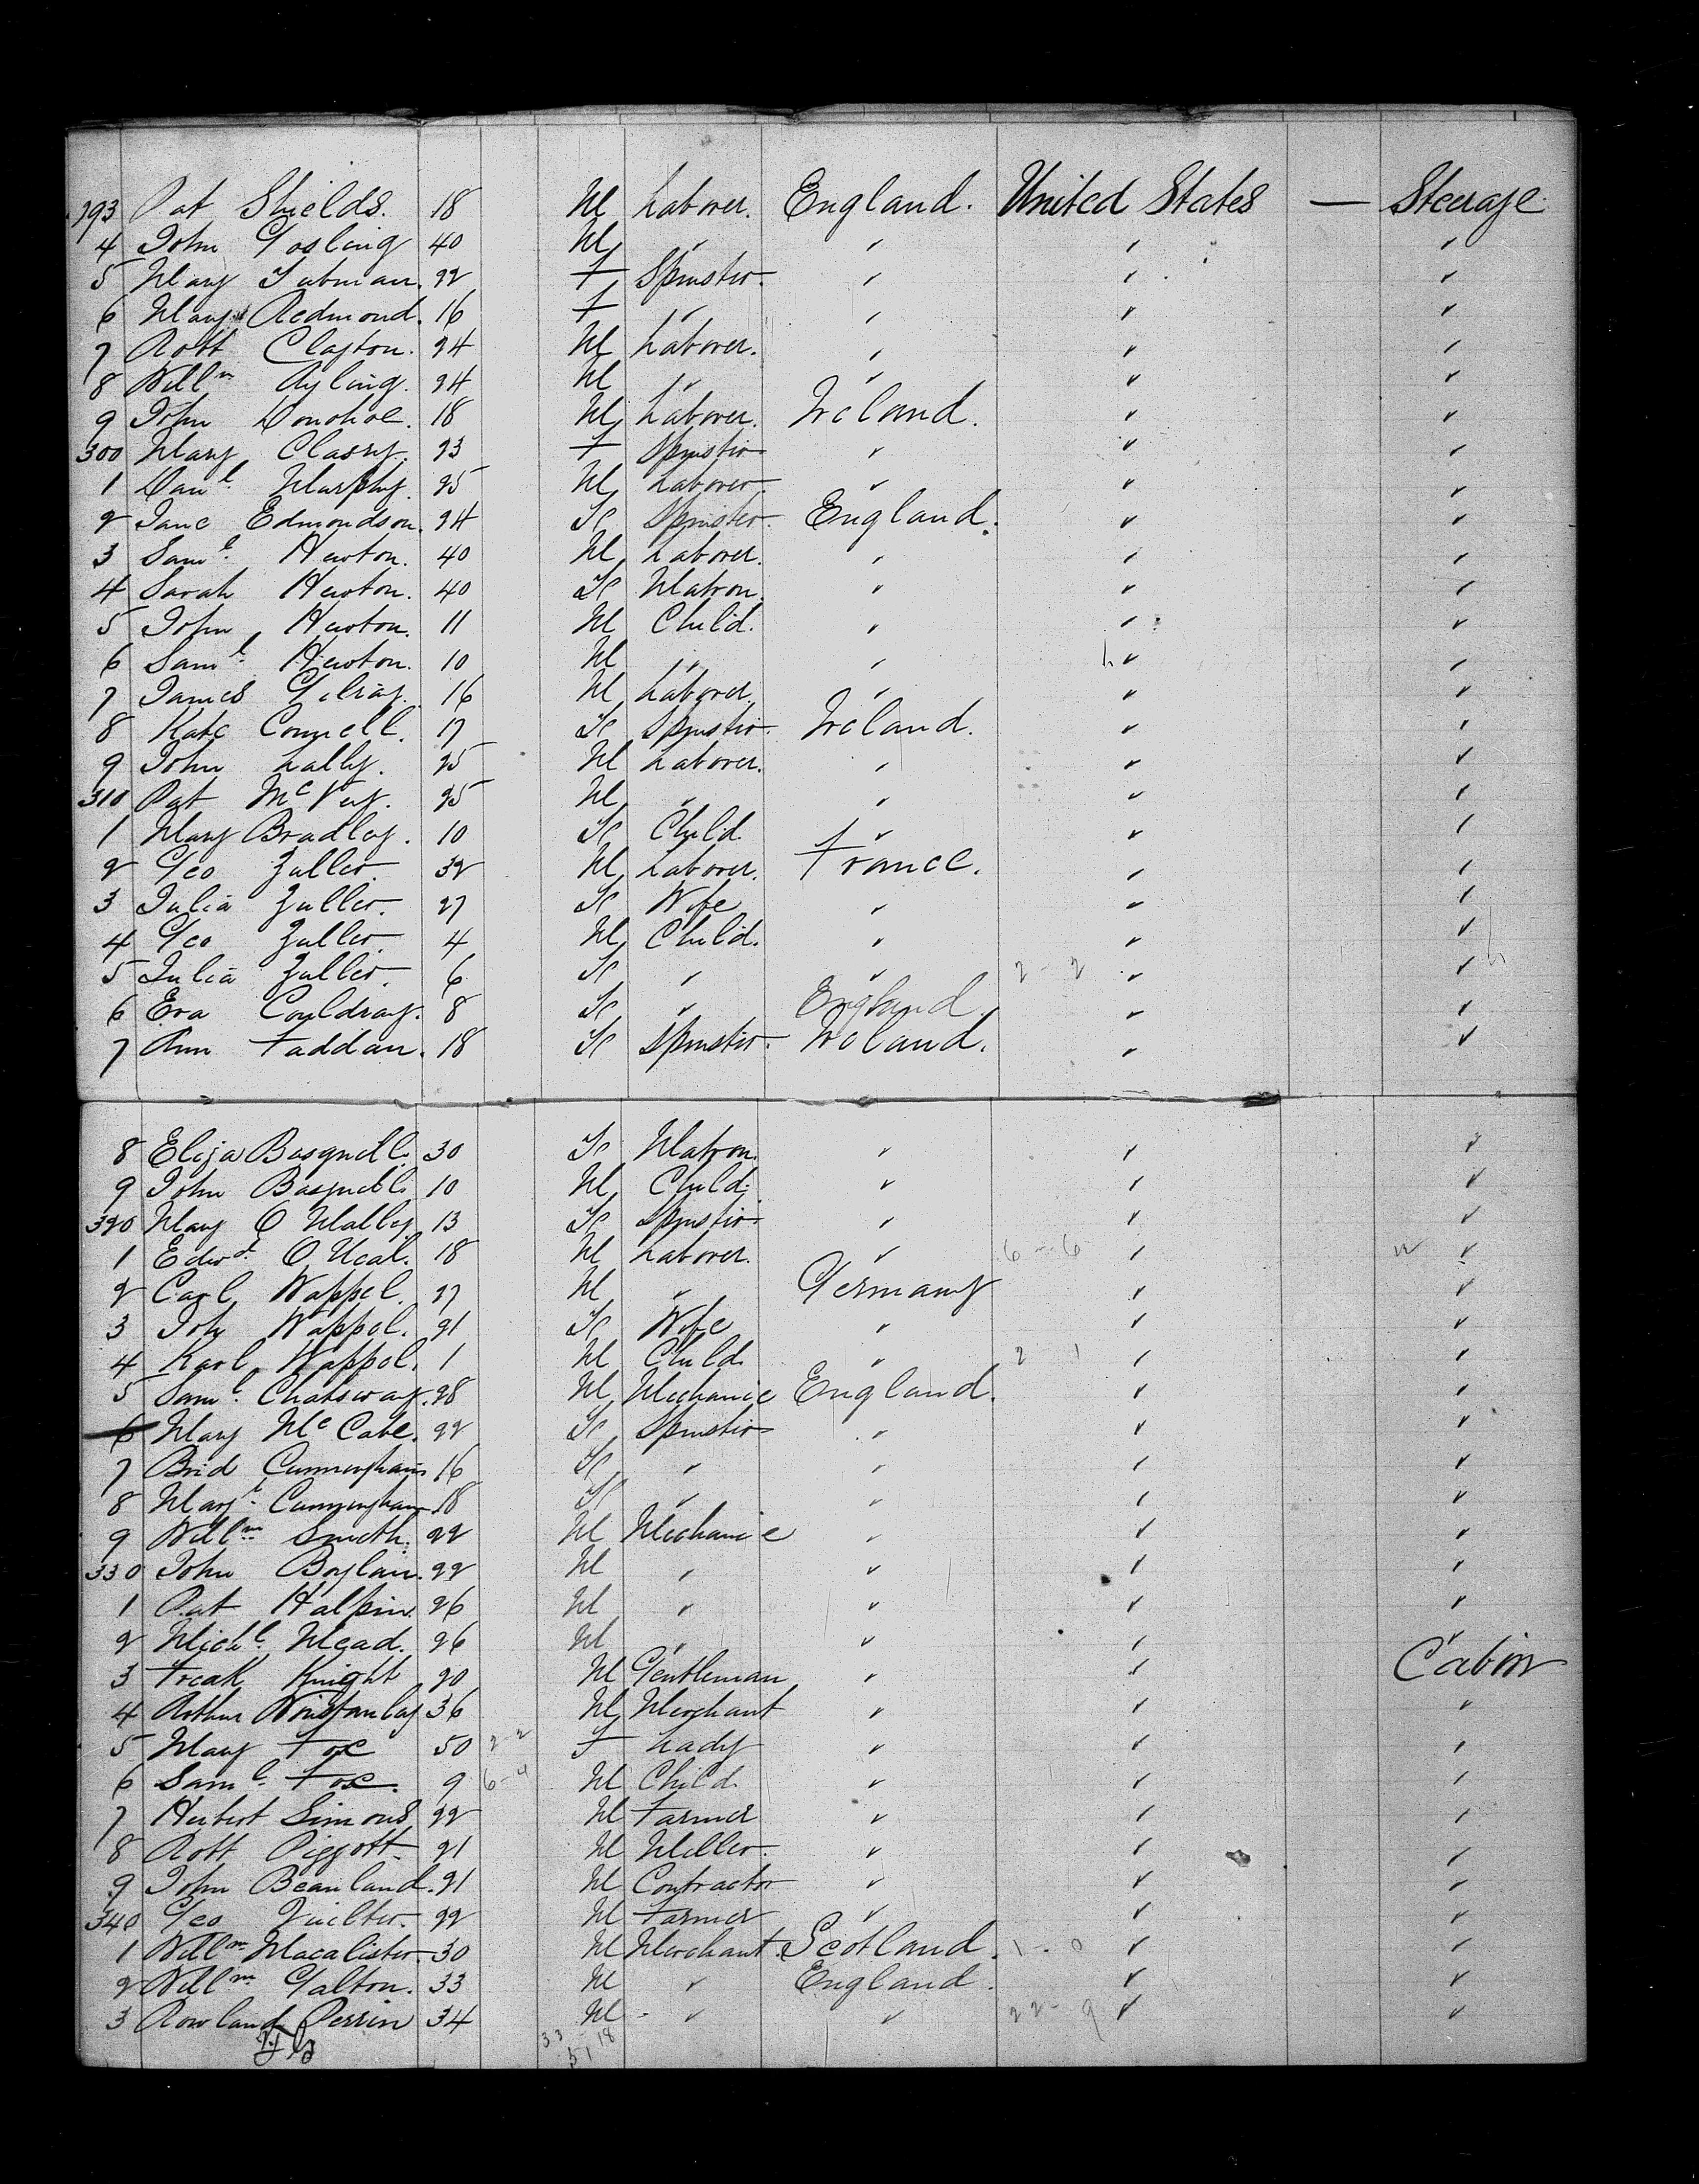 293 Pat Shields. 18 M Laborer. England. United States — Steerage
4 John Gosling 40 M " " " "
5 Mary Tubman. 22 F Spinster. " " "
6 Mary Redmond. 16 F " " " "
7 Robt Clayton. 24 M Laborer. " " "
8 Willm Ayling. 24 M " " " "
9 John Donohoe. 18 M Laborer. Ireland. " "
300 Mary Classy. 23 F Spinster " " "
1 Danl. Murphy. 25 M Laborer. " " "
2 Jane Edmondson. 24 F Spinster. England. " "
3 Saml. Newton. 40 M Laborer. " " "
4 Sarah Newton. 40 F Matron. " " "
5 John Newton. 11 M Child. " " "
6 Saml. Newton. 10 M " " " "
7 James Gilray. 16 M Laborer. " " "
8 Kate Connell. 17 F Spinster. Ireland. " "
9 John Lally. 25 M Laborer. " " "
310 Pat McVey. 25 M " " " "
1 Mary Bradley. 10 F Child. " " "
2 Geo Zuller. 32 M Laborer. France. " "
3 Julia Zuller. 27 F Wife " " "
4 Geo Zuller. 4 M Child. " " "
5 Julia Zuller. 6 F " " 2-2 " "
6 Eva Couldray. 8 F " England. " "
7 Ann Faddan. 18 F Spinster. Ireland. " "
8 Eliza Basquell. 30 F Matron. " " "
9 John Basquell. 10 M Child. " " "
320 Mary O Malley. 13 F Spinster " " "
1 Edwd. O Neal. 18 M Laborer. " 6-6 " "
2 Carl Wappel. 27 M " Germany " "
3 Joh Wappel. 21 F Wife " " "
4 Karl Wappel. 1 M Child. " 2 1 " "
5 Saml. Chatsway. 28 M Mechanic England. " "
6 Mary McCabe. 22 F Spinster " " "
7 Brid Cunningham 16 F " " " "
8 Margt. Cunningham 18 F " " " "
9 Willm Smith. 22 M Mechanic " " "
330 John Boylan. 22 M " " " "
1 Pat Halpin. 26 M " " " "
2 Michl. Mead. 26 M " " " "
3 Fredk Knight 20 M Gentleman " " Cabin
4 Arthur Winstanley 36 M Merchant " " "
5 Mary Fox 50 2-2 F Lady " " "
6 Saml. Fox. 9 6-4 M Child. " " "
7 Herbert Simons 22 M Farmer " " "
8 Robt Piggott. 21 M Miller. " " "
9 John Beanland. 21 M Contractor " " "
340 Geo Quilter. 22 M Farmer " " "
1 Willm. Macalister. 30 M Merchant. Scotland. 1-0 " "
2 Willm Galton. 33 M " England. " "
3 Rowland Perrin 34 M " " 22-9 " "
33 18
51